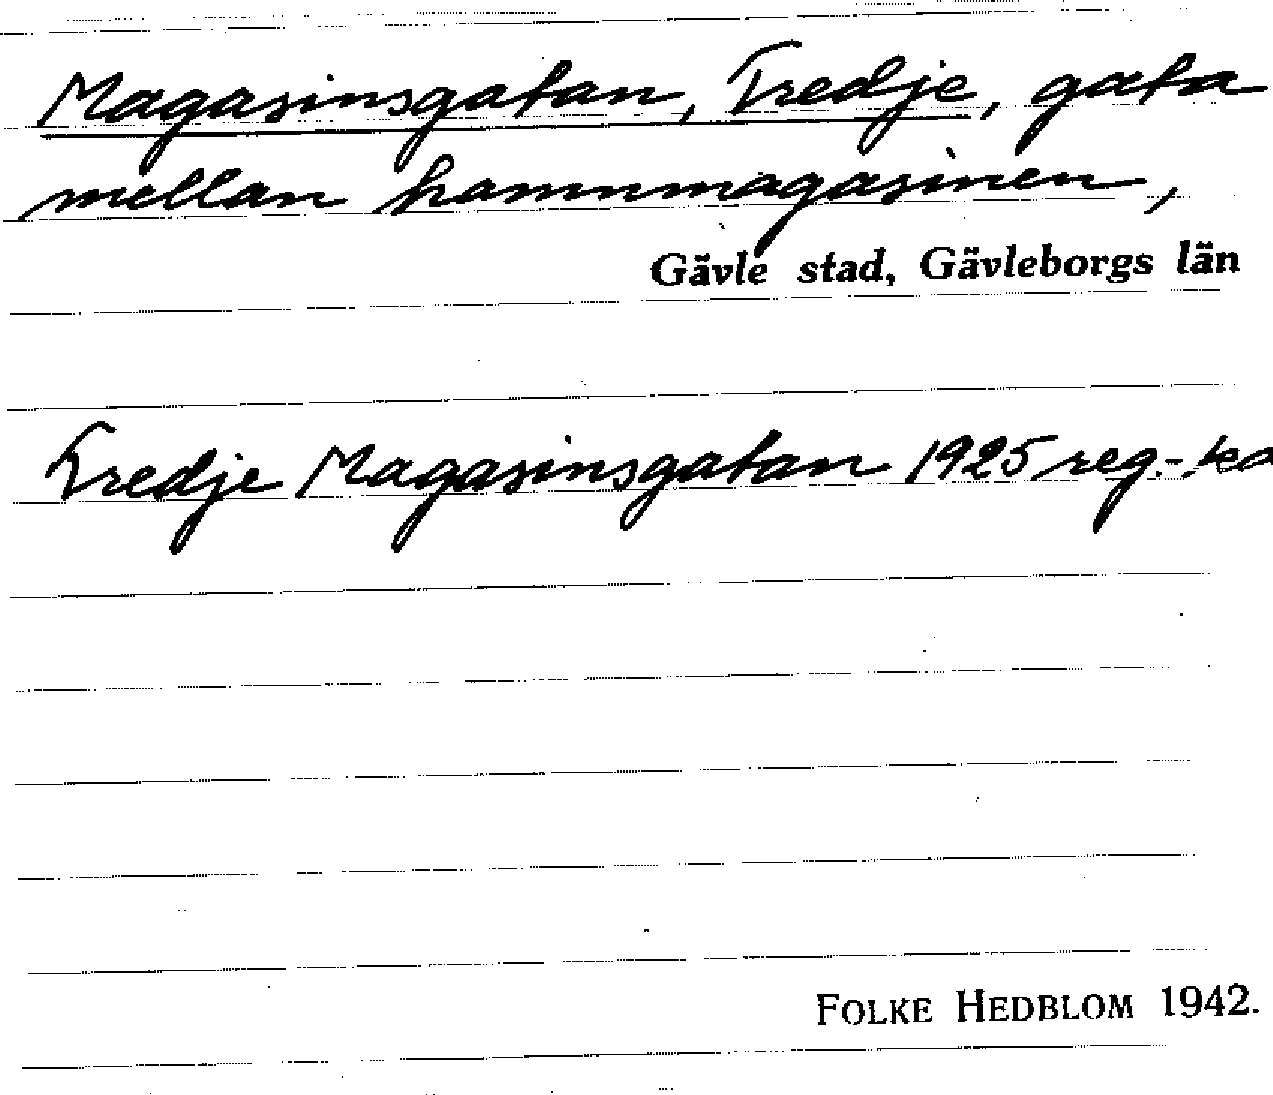 Magasinsgatan, Tredje, gata
mellan hamnmagasinen,
Gävle stad, Gävleborgs län
Tredje Magasinsgatan 1925 reg.-ka
FOLKE HEDBLOM 1942.